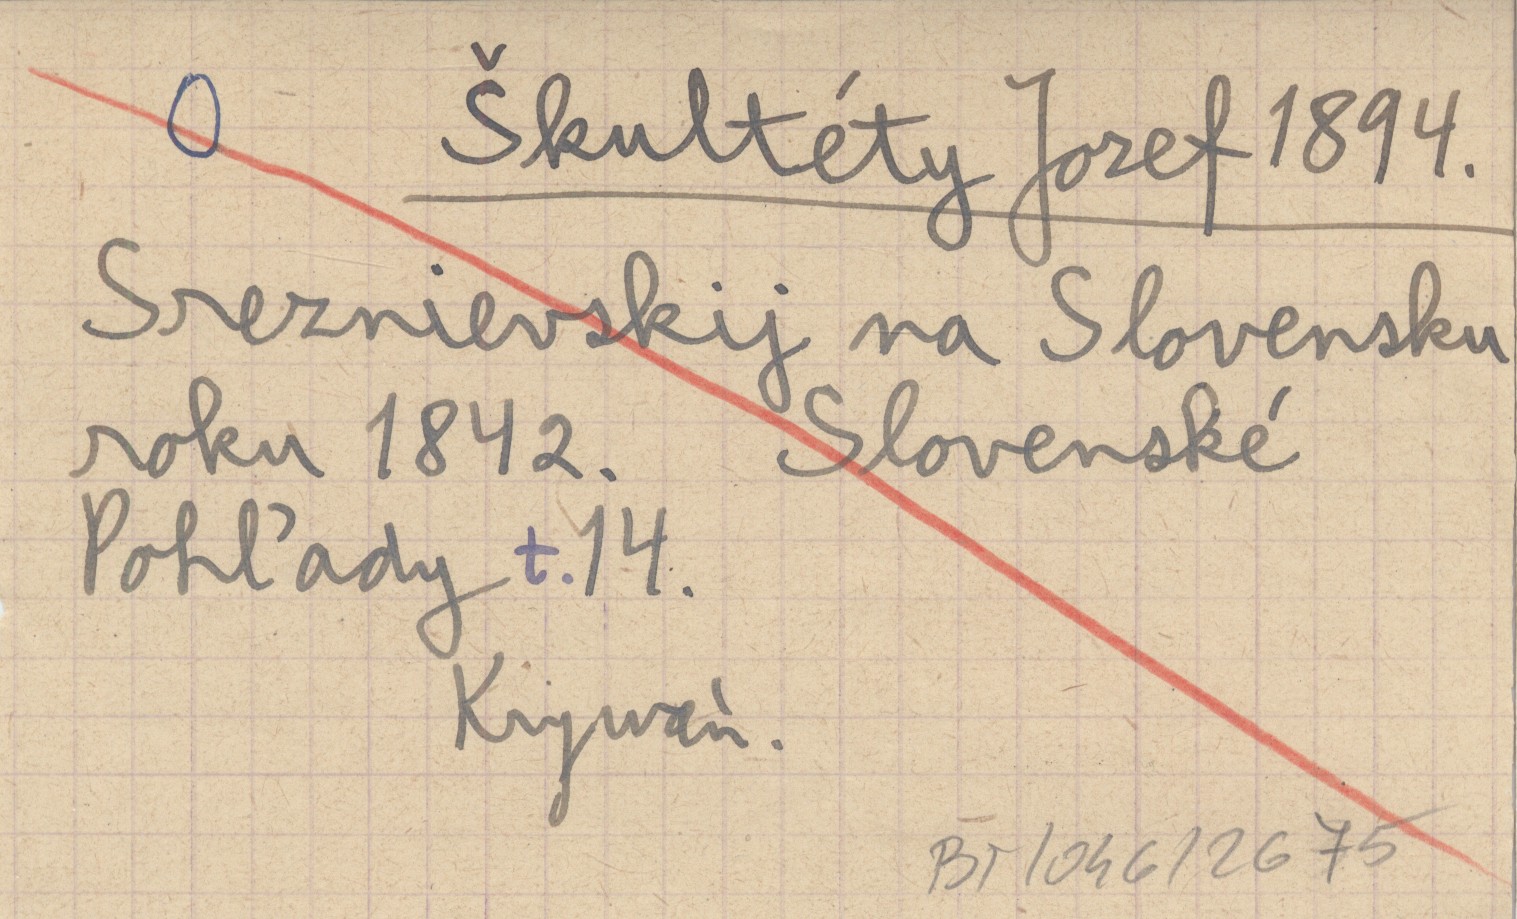 O Škultéty Jozef 1894.
Sreznievskij na Slovensku
roku 1842. Slovenské
Pohľady t.14.
Krywań.
BT/046/2675